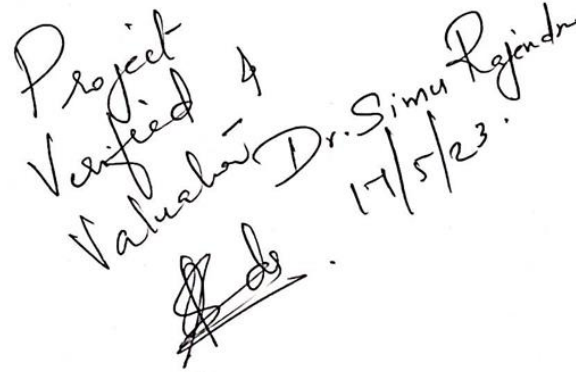 Project
Verified &
Valuation
Dr. Simu Rajendra
17/5/23.